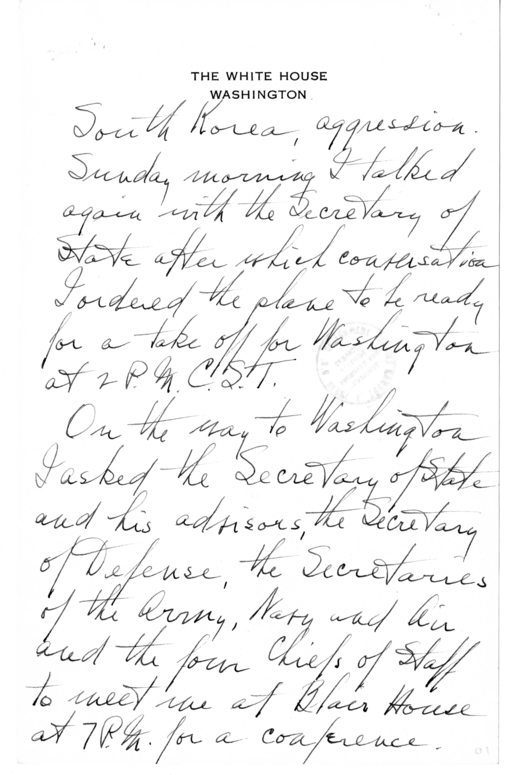 THE WHITE HOUSE
WASHINGTON
South Korea, aggression.
Sunday morning I talked
again with the Secretary of
State after which conversation
I ordered the plane to be ready
for a take off for Washington
at 2 P.M. C.S.T.
On the way to Washington
I asked the Secretary of State
and his advisors, the Secretary
of Defense, the Secretaries
of the Army, Navy and Air
and the four Chiefs of Staff
to meet me at Blair House
at 7 P.M. for a conference.